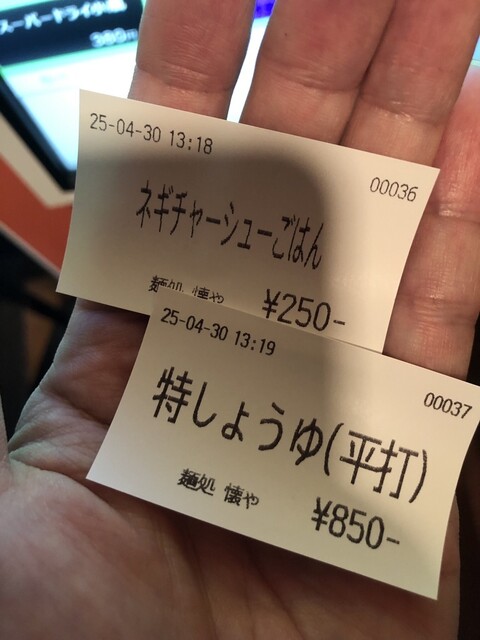 スーパードライ小瓶
25-04-30 13:18
00036
ネギチャーシューごはん
麺処 懐や
¥250-
25-04-30 13:19
00037
特しょうゆ(平打)
麺処 懐や
¥850-